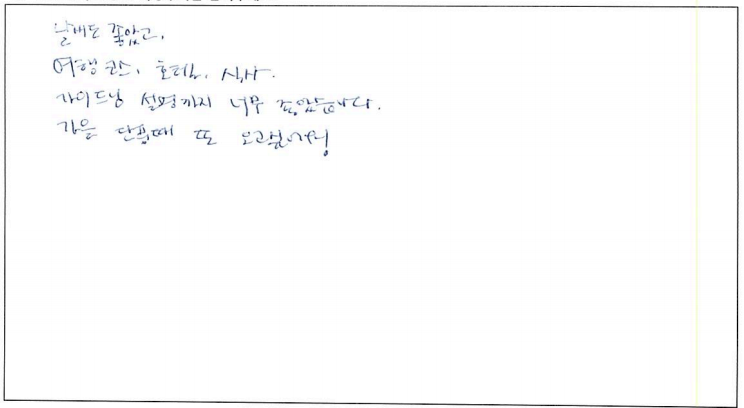 날씨도 좋았고,
여행 코스, 호텔, 식사.
가이드님 설명까지 너무 좋았습니다.
가을 단풍때 또 오고싶어요